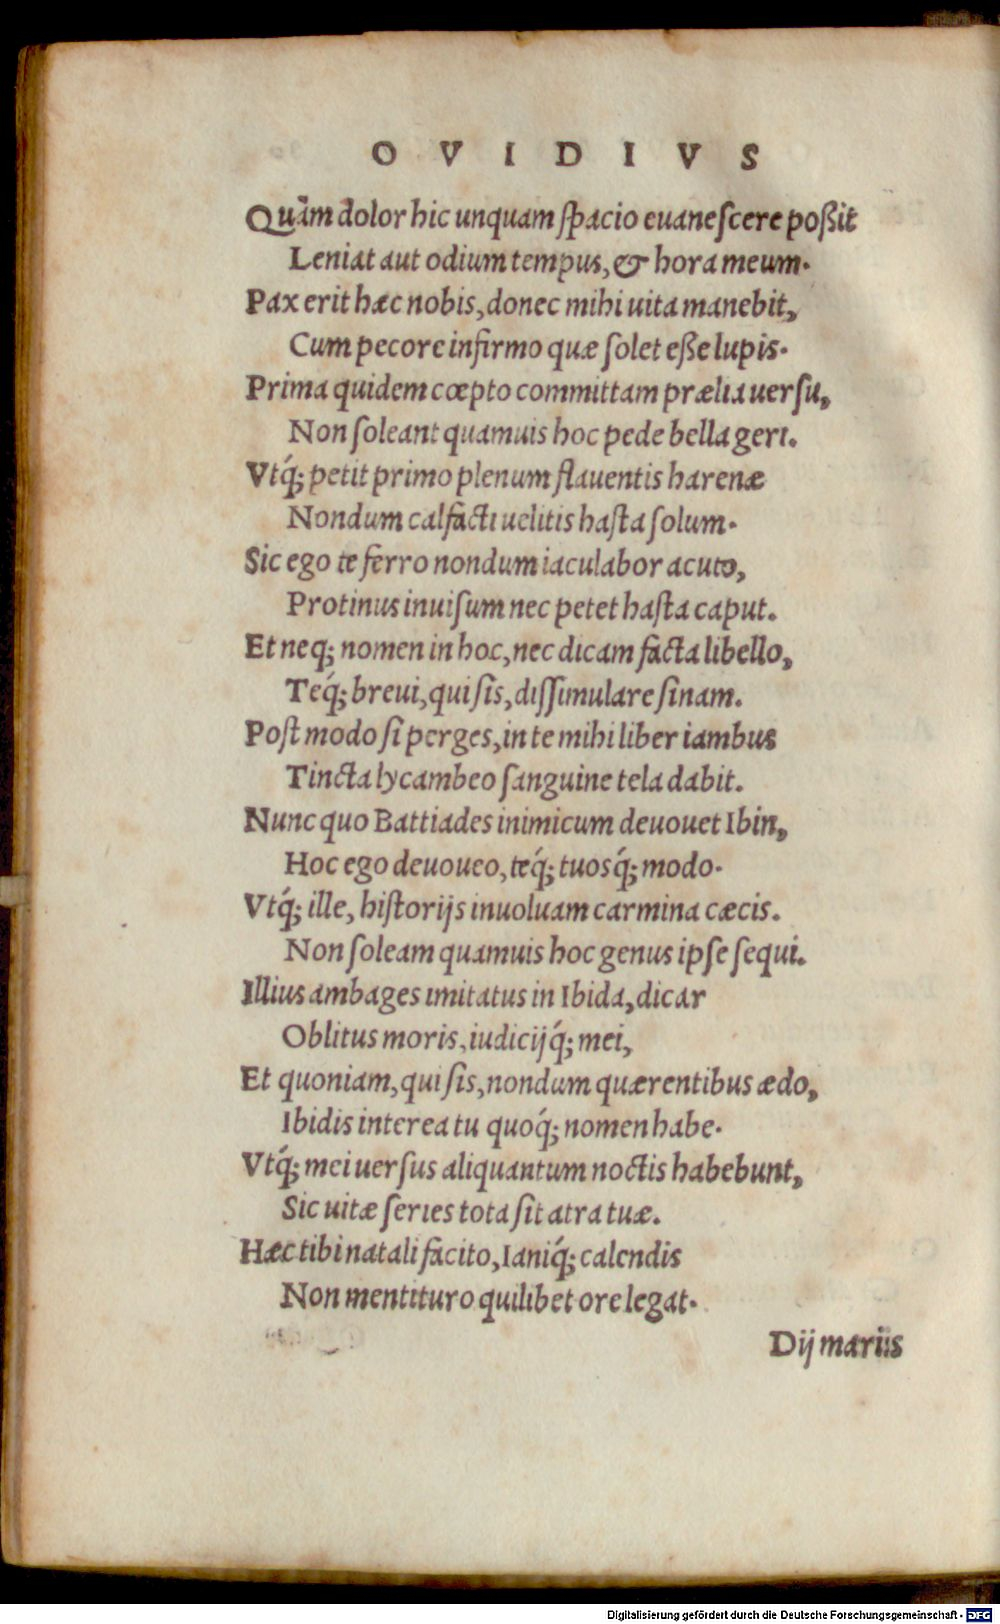 OVIDIVS
Quàm dolor hic unquam ſpacio euaneſcere poßit
Leniat aut odium tempus, & hora meum.
Pax erit hæc nobis, donec mihi uita manebit,
Cum pecore infirmo quæ ſolet eße lupis.
Prima quidem cœpto committam prælia uerſu,
Non ſoleant quamuis hoc pede bella geri.
Vtq́; petit primo plenum flauentis harenæ
Nondum calfacti uelitis haſta ſolum.
Sic ego te ferro nondum iaculabor acuto,
Protinus inuiſum nec petet haſta caput.
Et neq; nomen in hoc, nec dicam facta libello,
Teq́; breui, qui ſis, diſſimulare ſinam.
Poſt modo ſi perges, in te mihi liber iambus
Tincta lycambeo ſanguine tela dabit.
Nunc quo Battiades inimicum deuouet Ibin,
Hoc ego deuoueo, teq́; tuosq́; modo.
Vtq́; ille, hiſtorijs inuoluam carmina cæcis.
Non ſoleam quamuis hoc genus ipſe ſequi.
Illius ambages imitatus in Ibida, dicar
Oblitus moris, iudicijq́; mei,
Et quoniam, qui ſis, nondum quærentibus ædo,
Ibidis interea tu quoq́; nomen habe.
Vtq́; mei uerſus aliquantum noctis habebunt,
Sic uitæ ſeries tota ſit atra tuæ.
Hæc tibi natali facito, Ianiq́; calendis
Non mentituro quilibet ore legat.
Dij mariis
Digitalisierung gefördert durch die Deutsche Forschungsgemeinschaft - DFG